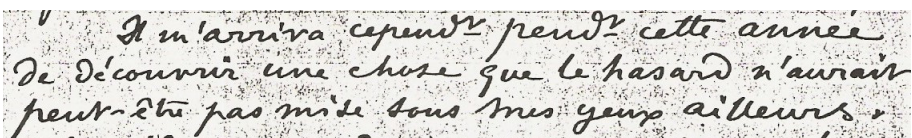 Il m'arriva cepend^t pend^t cette année
de découvrir une chose que le hasard n'aurait
peut-être pas mise sous mes yeux ailleurs.